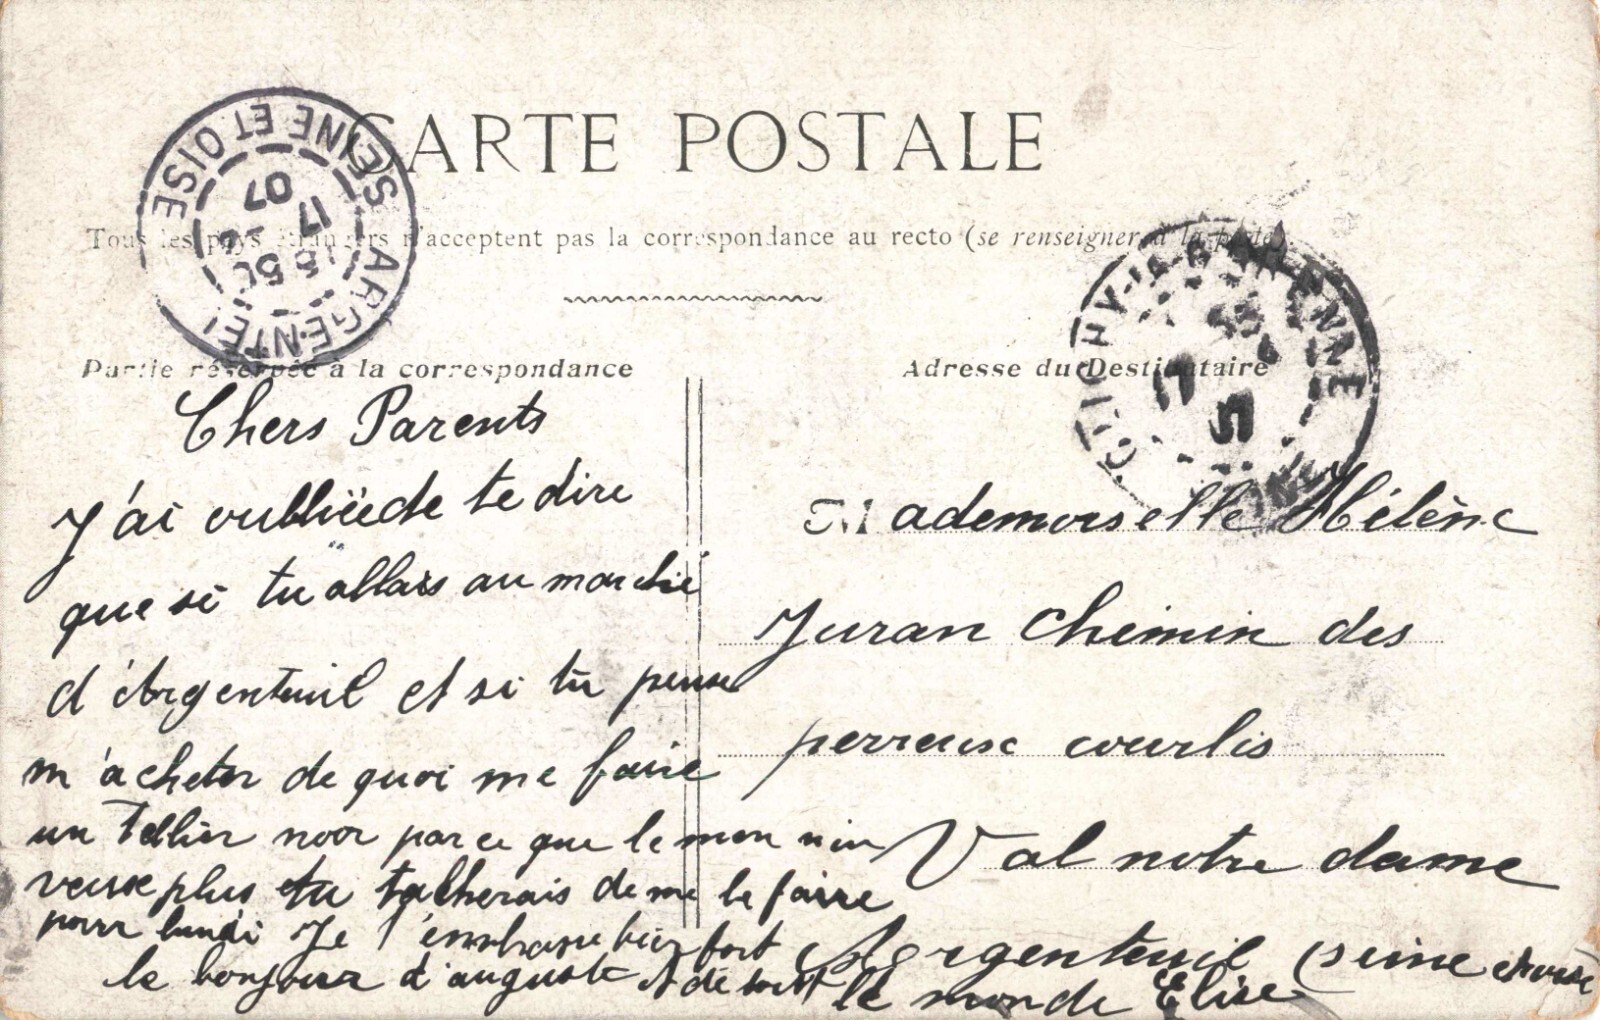 CARTE POSTALE
Tous les pays étrangers n'acceptent pas la correspondance au recto (se renseigner à la poste)
Partie réservée à la correspondance
Adresse du Destinataire
ARGENTEUIL SEINE ET OISE
17
07
CLICHY-LA-GARENNE
17
5
Chers Parents
J'ai oubliïede te dire
que si tu allais au marché
d'Argenteuil et si tu pense
m'acheter de quoi me faire
un Tablier noir parce que le mon
veuse plus et tu tacherais de me le faire
pour lundi Je t'embrasse bien fort
le bonjour d'auguste et de tout le monde Elise
Mademoiselle Hélène
Juran Chemin des
perreuse courlis
Val notre dame
Argenteuil (seine et oise